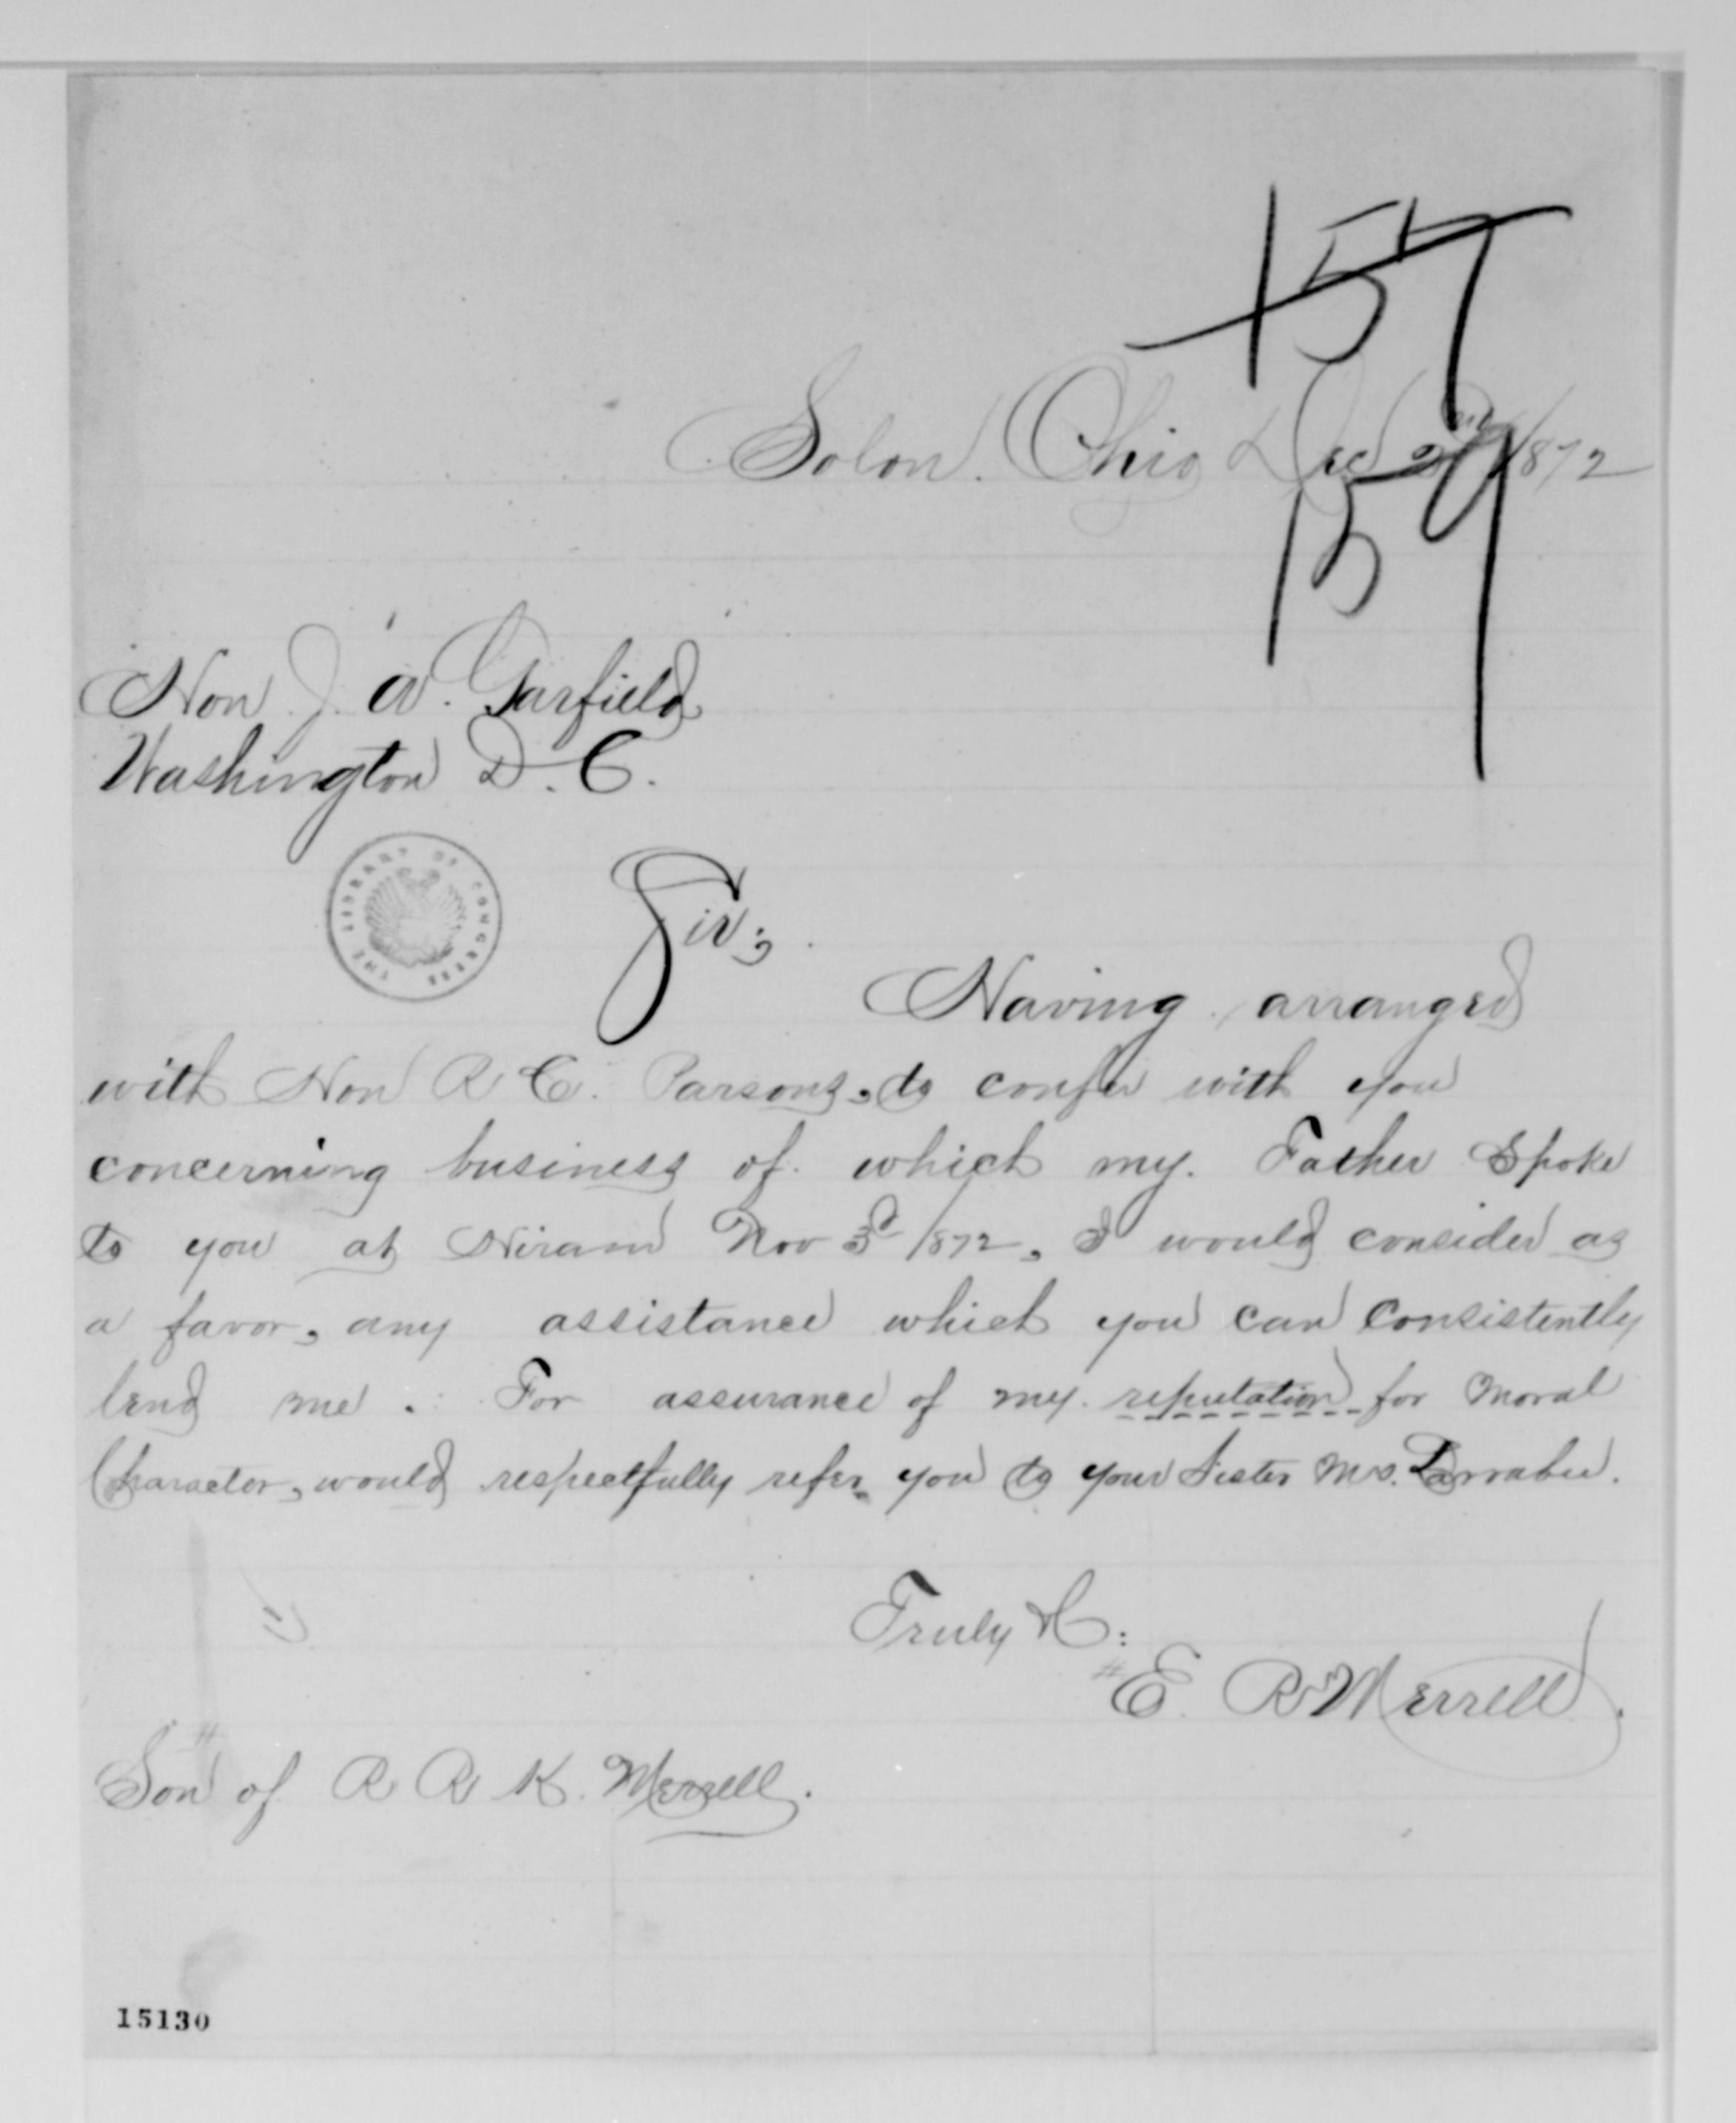 157
Solon. Ohio Dec 2nd 1872
159
Hon J. A. Garfield
Washington D. C.
THE LIBRARY OF CONGRESS
Sir;
Having arranged
with Hon R C. Parsons, to confer with you
concerning business of which my Father Spoke
to you at Hiram Nov 3d /872, I would consider as
a favor, any assistance which you can Consistently
lend me. For assurance of my reputation for Moral
Character, would respectfully refer you to your Sister Mrs. Larrabee.
Truly &C:
E. R. Merrell.
Son of R R K. Merrell.
15130